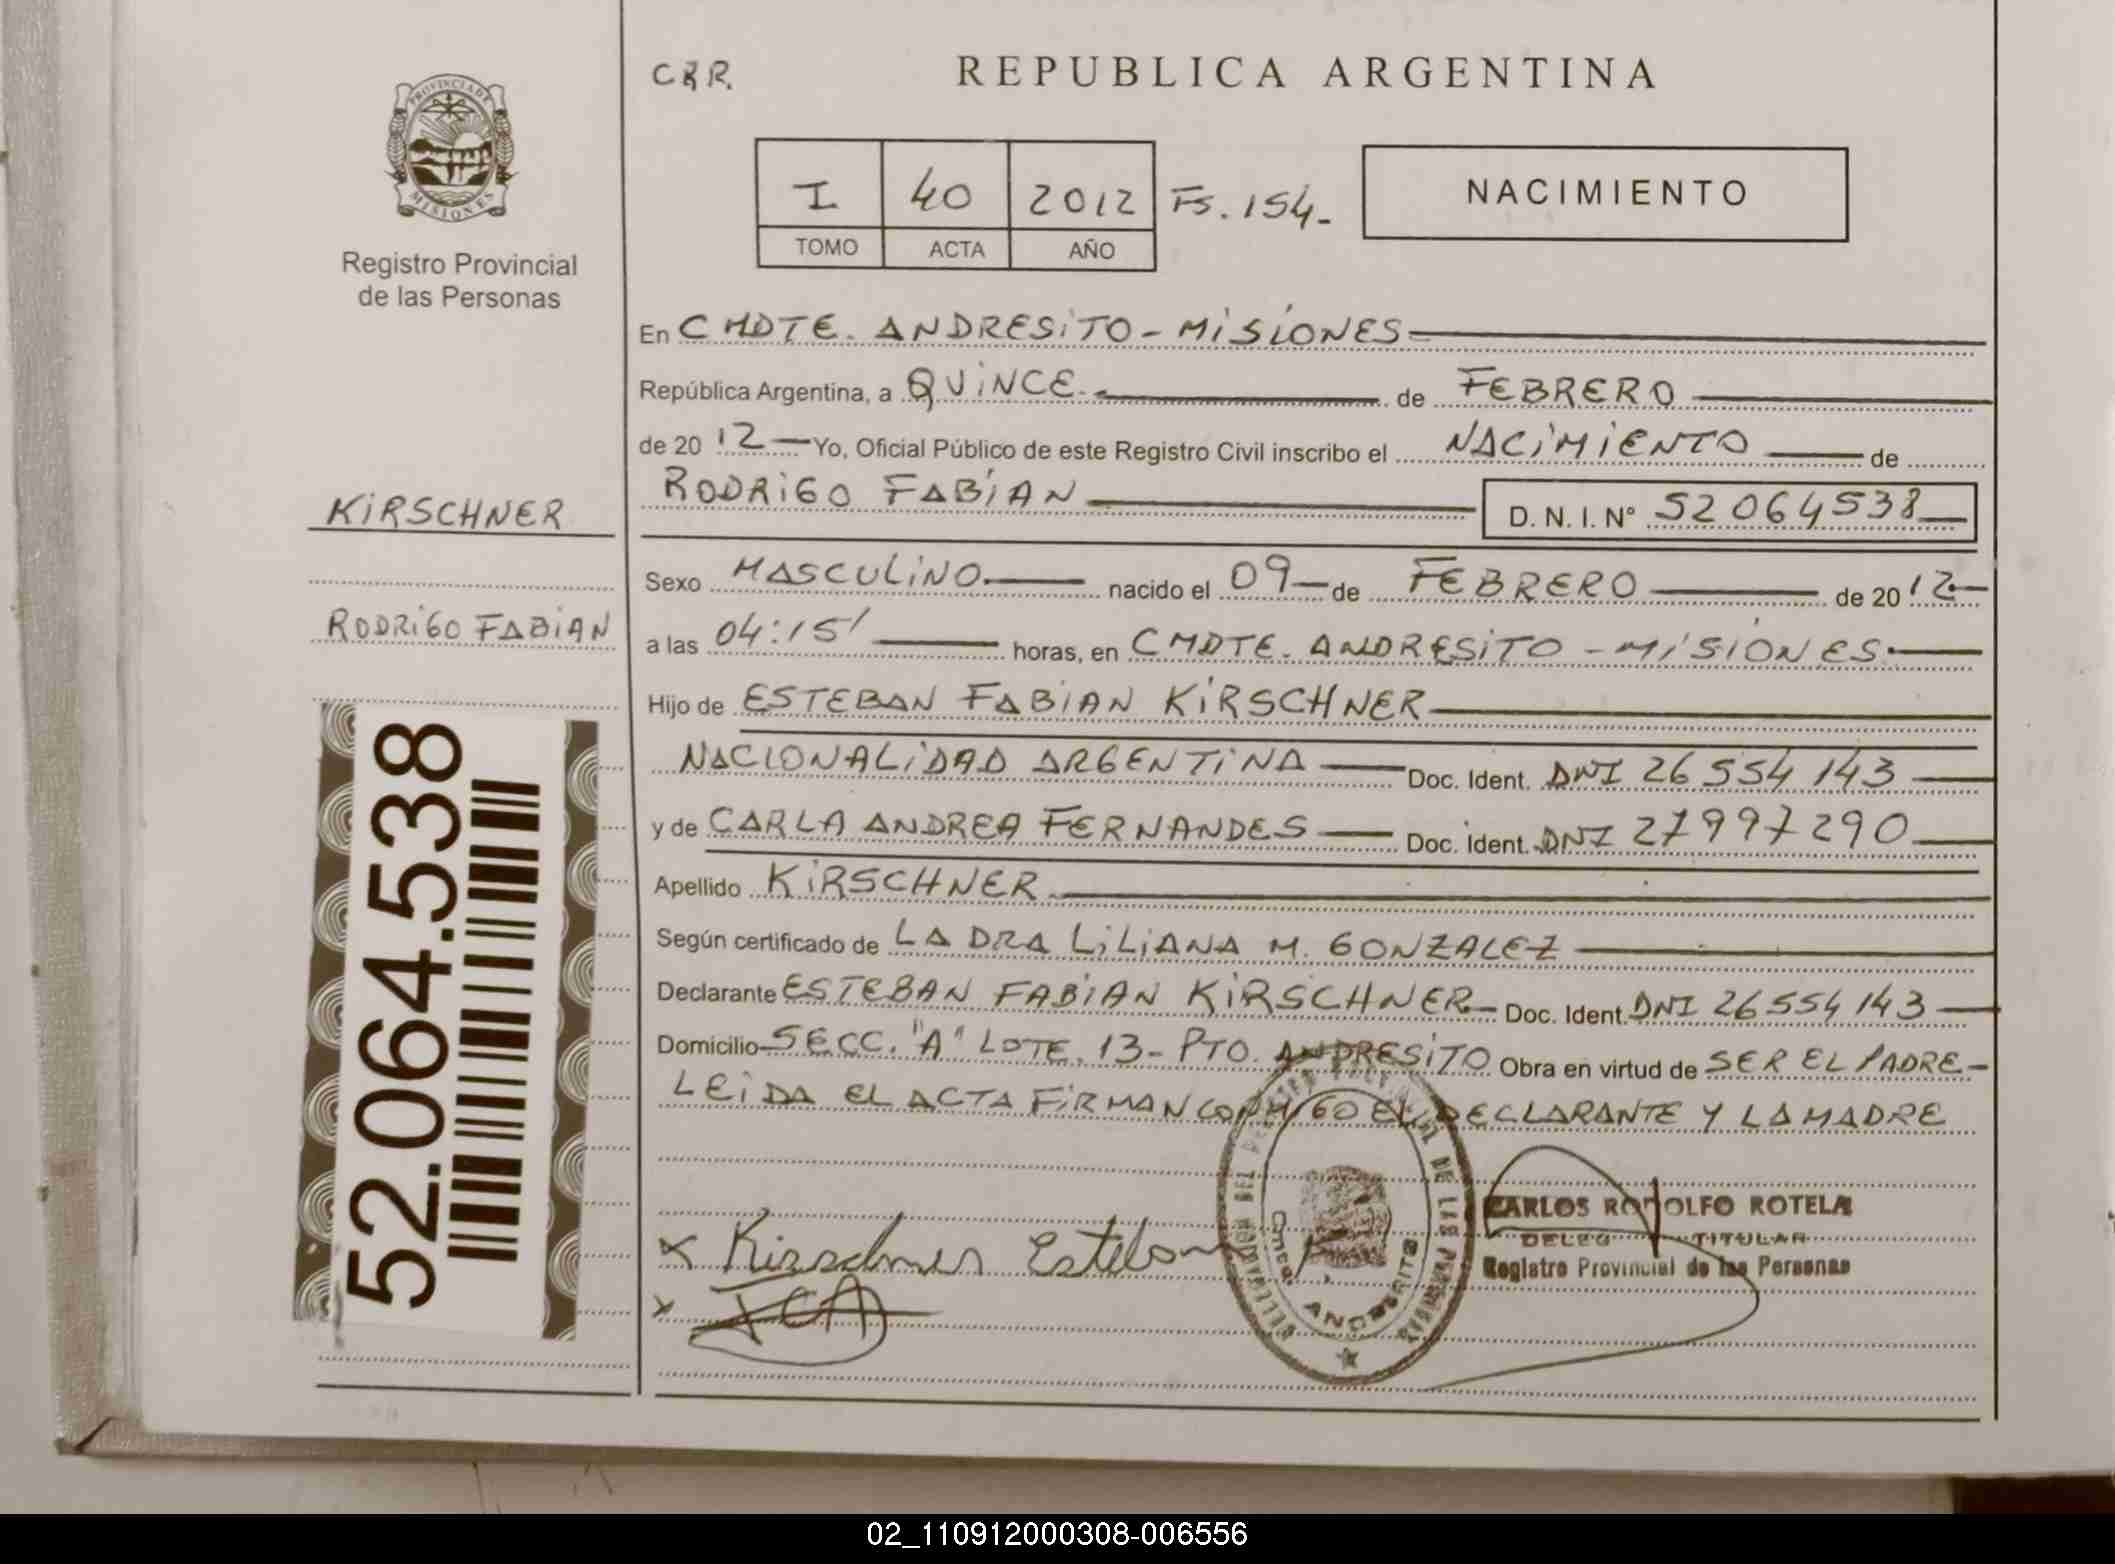 PROVINCIA DE
MISIONES
Registro Provincial
de las Personas
KIRSCHNER
RODRIGO FABIAN
52.064.538
REPUBLICA ARGENTINA
I 40 2012 Fs. 154.-
TOMO ACTA AÑO
NACIMIENTO
En CMDTE. ANDRESITO - MISIONES
República Argentina, a QUINCE.- de FEBRERO
de 20 12 Yo, Oficial Público de este Registro Civil inscribo el NACIMIENTO de
RODRIGO FABIAN D. N. I. N° 52064538
Sexo MASCULINO nacido el 09 de FEBRERO de 20 12
a las 04:15' horas, en CMDTE. ANDRESITO - MISIONES
Hijo de ESTEBAN FABIAN KIRSCHNER
NACIONALIDAD ARGENTINA Doc. Ident. DNI 26554143
y de CARLA ANDREA FERNANDES Doc. Ident. DNI 27997290
Apellido KIRSCHNER
Según certificado de LA DRA LILIANA M. GONZALEZ
Declarante ESTEBAN FABIAN KIRSCHNER Doc. Ident. DNI 26554143
Domicilio SECC. "A" LOTE. 13- PTO. ANDRESITO Obra en virtud de SER EL PADRE-
LEIDA EL ACTA FIRMAN CONMIGO EL DECLARANTE Y LA MADRE
x Kirschner Esteban
CARLOS RODOLFO ROTELA
DELEG TITULAR
Registro Provincial de las Personas
02_110912000308-006556